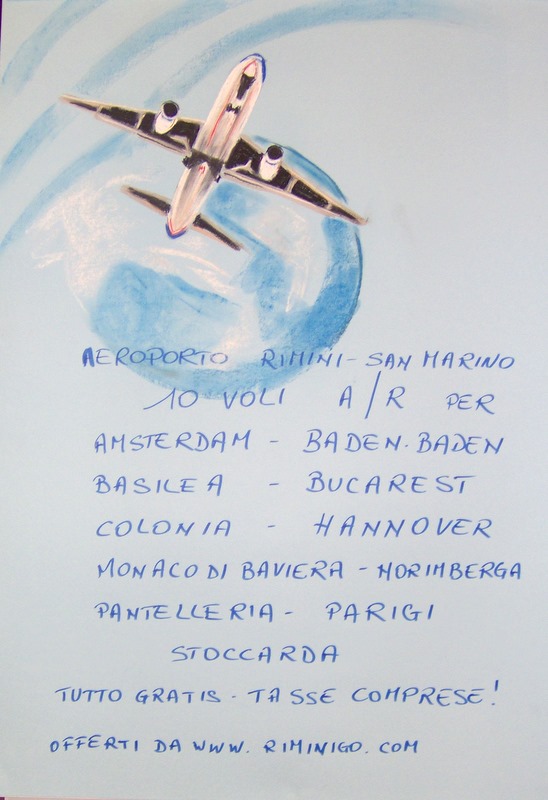 AEROPORTO RIMINI-SAN MARINO
10 VOLI A/R PER
AMSTERDAM - BADEN-BADEN
BASILEA - BUCAREST
COLONIA - HANNOVER
MONACO DI BAVIERA - NORIMBERGA
PANTELLERIA - PARIGI
STOCCARDA
TUTTO GRATIS - TASSE COMPRESE!
OFFERTI DA WWW.RIMINIGO.COM